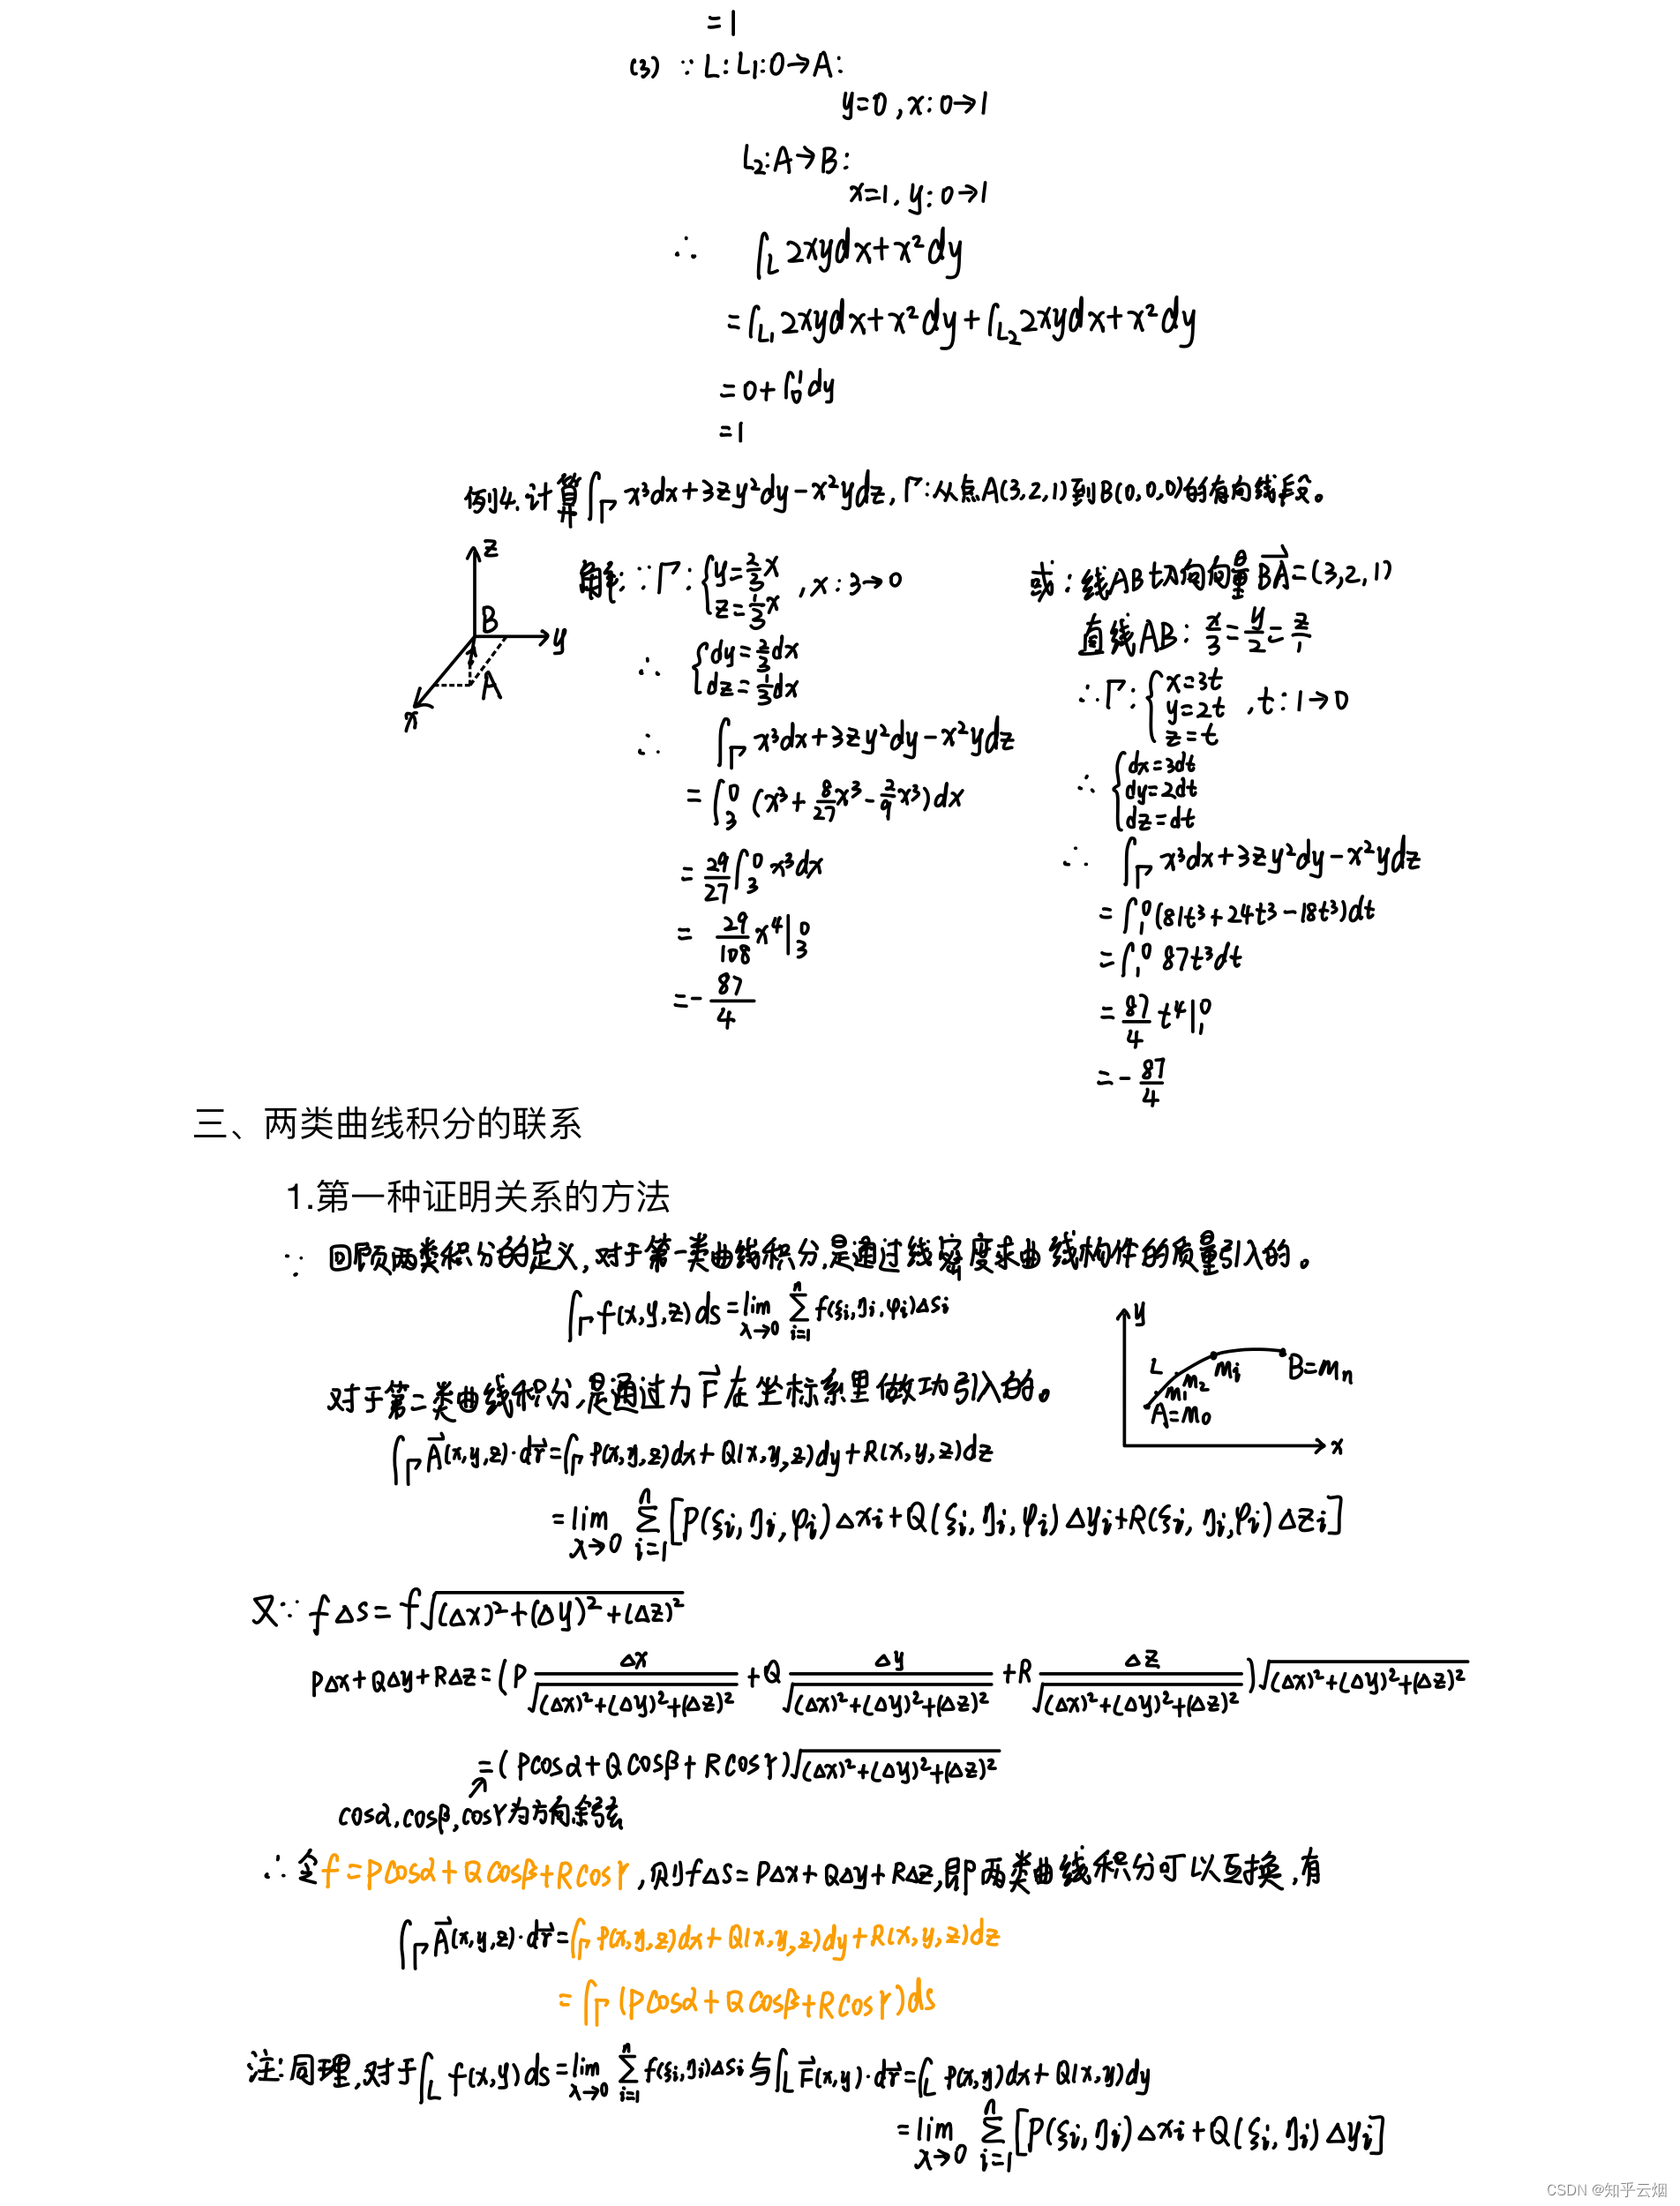 =1
(3) ∵ L: L₁: O→A:
y=0, x: 0→1
L₂: A→B:
x=1, y: 0→1
∴ ∫_L 2xydx+x²dy
=∫_L₁ 2xydx+x²dy+∫_L₂ 2xydx+x²dy
=0+∫₀¹dy
=1
例4. 计算∫_Γ x³dx+3zy²dy-x²ydz, Γ: 从点A(3,2,1)到B(0,0,0)的有向线段。
z
B
y
A
x
解: ∵Γ: {y=2/3x, z=1/3x , x: 3→0
∴ {dy=2/3dx, dz=1/3dx
∴ ∫_Γ x³dx+3zy²dy-x²ydz
=∫₃⁰(x³+8/27x³-2/9x³)dx
=29/27∫₃⁰x³dx
=29/108x⁴|₃⁰
=-87/4
或: 线AB切向向量BA→=(3,2,1)
直线AB: x/3=y/2=z/1
∴Γ: {x=3t, y=2t, z=t , t: 1→0
∴ {dx=3dt, dy=2dt, dz=dt
∴ ∫_Γ x³dx+3zy²dy-x²ydz
=∫₁⁰(81t³+24t³-18t³)dt
=∫₁⁰87t³dt
=87/4t⁴|₁⁰
=-87/4
三、两类曲线积分的联系
1.第一种证明关系的方法
∵ 回顾两类积分的定义, 对于第一类曲线积分,是通过线密度求曲线构件的质量引入的。
∫_Γ f(x,y,z)ds=lim_{λ→0} Σ_{i=1}^n f(ξi,ηi,φi)Δsi
y
L
m₁ m₂ mi B=mn
A=m₀
x
对于第二类曲线积分,是通过力F→在坐标系里做功引入的。
∫_Γ A→(x,y,z)·dr→=∫_Γ P(x,y,z)dx+Q(x,y,z)dy+R(x,y,z)dz
=lim_{λ→0} Σ_{i=1}^n[P(ξi,ηi,φi)Δxi+Q(ξi,ηi,φi)Δyi+R(ξi,ηi,φi)Δzi]
又∵ fΔs=f√((Δx)²+(Δy)²+(Δz)²)
PΔx+QΔy+RΔz=(P Δx/√((Δx)²+(Δy)²+(Δz)²)+Q Δy/√((Δx)²+(Δy)²+(Δz)²)+R Δz/√((Δx)²+(Δy)²+(Δz)²))√((Δx)²+(Δy)²+(Δz)²)
=(Pcosα+Qcosβ+Rcosγ)√((Δx)²+(Δy)²+(Δz)²)
cosα,cosβ,cosγ为方向余弦
∴ 令f=Pcosα+Qcosβ+Rcosγ, 则fΔs=PΔx+QΔy+RΔz,即两类曲线积分可以互换,有
∫_Γ A→(x,y,z)·dr→=∫_Γ P(x,y,z)dx+Q(x,y,z)dy+R(x,y,z)dz
=∫_Γ(Pcosα+Qcosβ+Rcosγ)ds
注:同理,对于∫_L f(x,y)ds=lim_{λ→0} Σ_{i=1}^n f(ξi,ηi)Δsi与∫_L F→(x,y)·dr→=∫_L P(x,y)dx+Q(x,y)dy
=lim_{λ→0} Σ_{i=1}^n[P(ξi,ηi)Δxi+Q(ξi,ηi)Δyi]
CSDN @知乎云烟